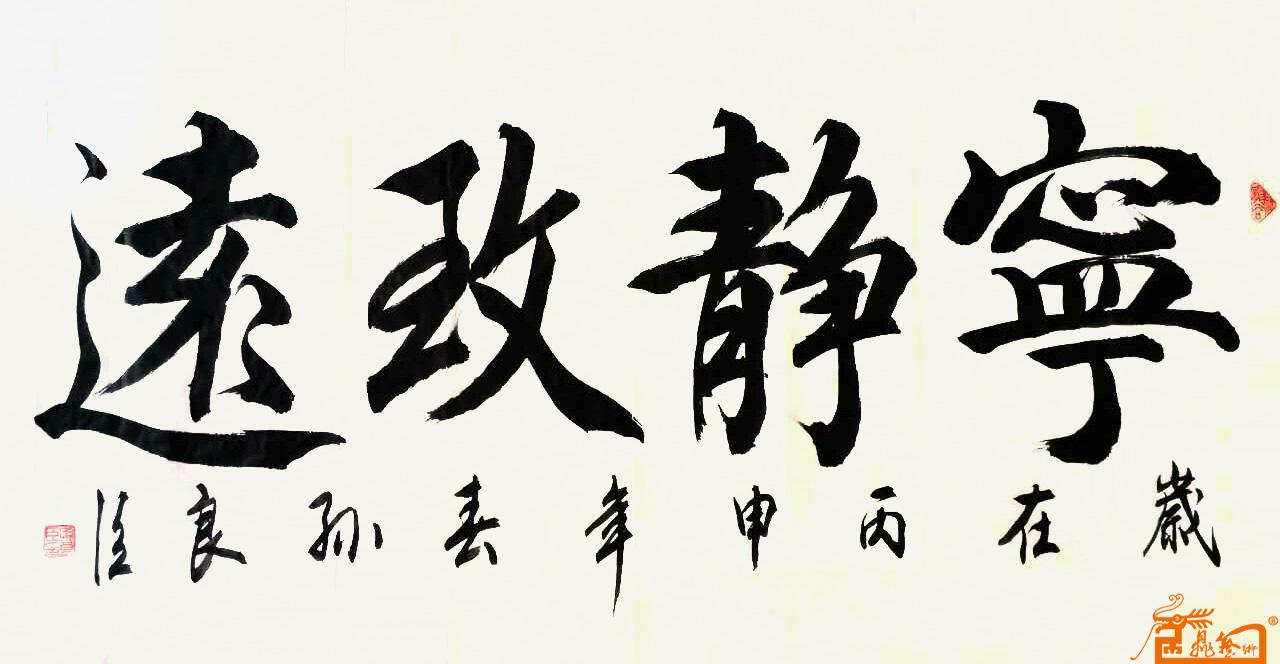 寧靜致遠
歲在丙申年春孫良臣